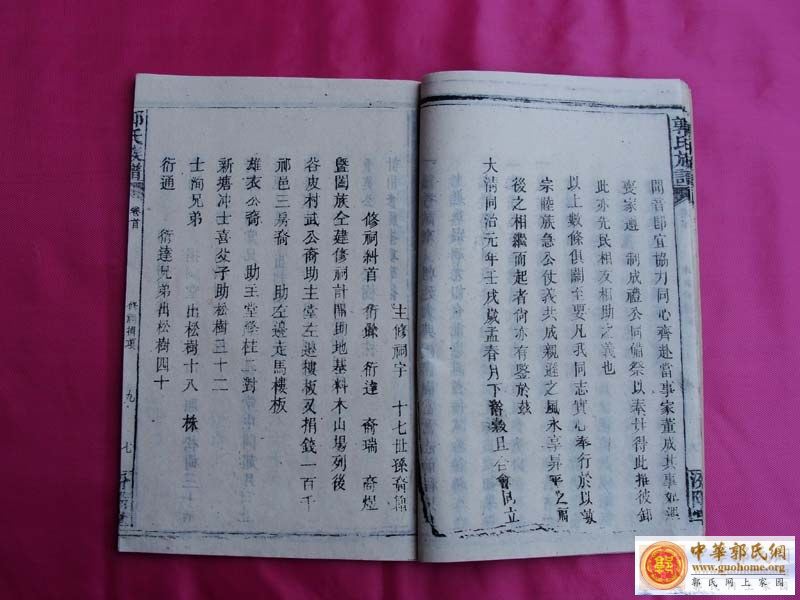 郭氏族譜
聞音即宜協力同心齊赴當事家董成其事如遇
喪家遵 制成禮公同備祭以奉毋得此推彼卸
此亦先民相友相助之義也
以上數條俱關至要凡我同志實心奉行於以敦
宗睦族急公仗義共成親遜之風永享昇平之福
後之相繼而起者尚亦有鑒於茲
大清同治元年壬戌歲孟春月下浣穀旦合會同立
主修祠宇 十七世孫裔
修祠糾首 衍 衍達 裔瑞 裔煜
暨闔族仝建修祠計開助地基料木山場列後
谷皮村武公裔助主堂左邊樓板又捐錢一百千
邑三房裔 出助左邊走馬樓板
雄公裔 助王堂桂二對
新塘冲士喜父子助松樹三十二
士洵兄弟 出松樹十八株
衍通 衍達兄弟出松樹四十
郭氏族譜
卷首
九
七
中華郭氏網
www.guohome.org
郭氏网上家园